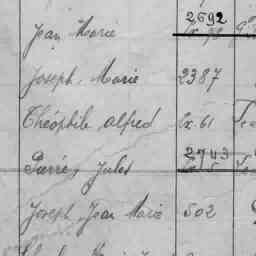 2692
Jean Marie
Joseph Marie 2387
Théophile Alfred Ex. 61
2743
Pierre, Jules
Joseph Jean Marie 502